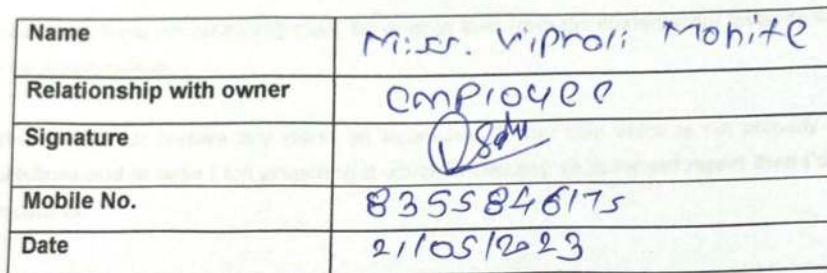 Name Miss. Viproli Mohite
Relationship with owner employee
Signature
Mobile No. 8355846175
Date 21/05/2023